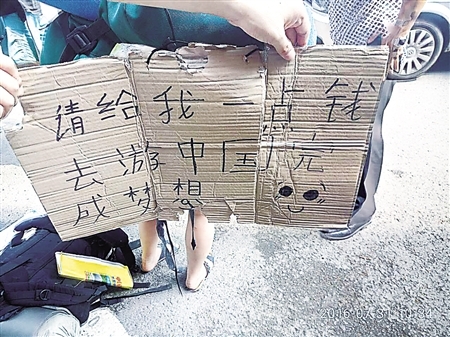 请给我一点钱
去游中国完
成梦想
2016 07 31 10:34